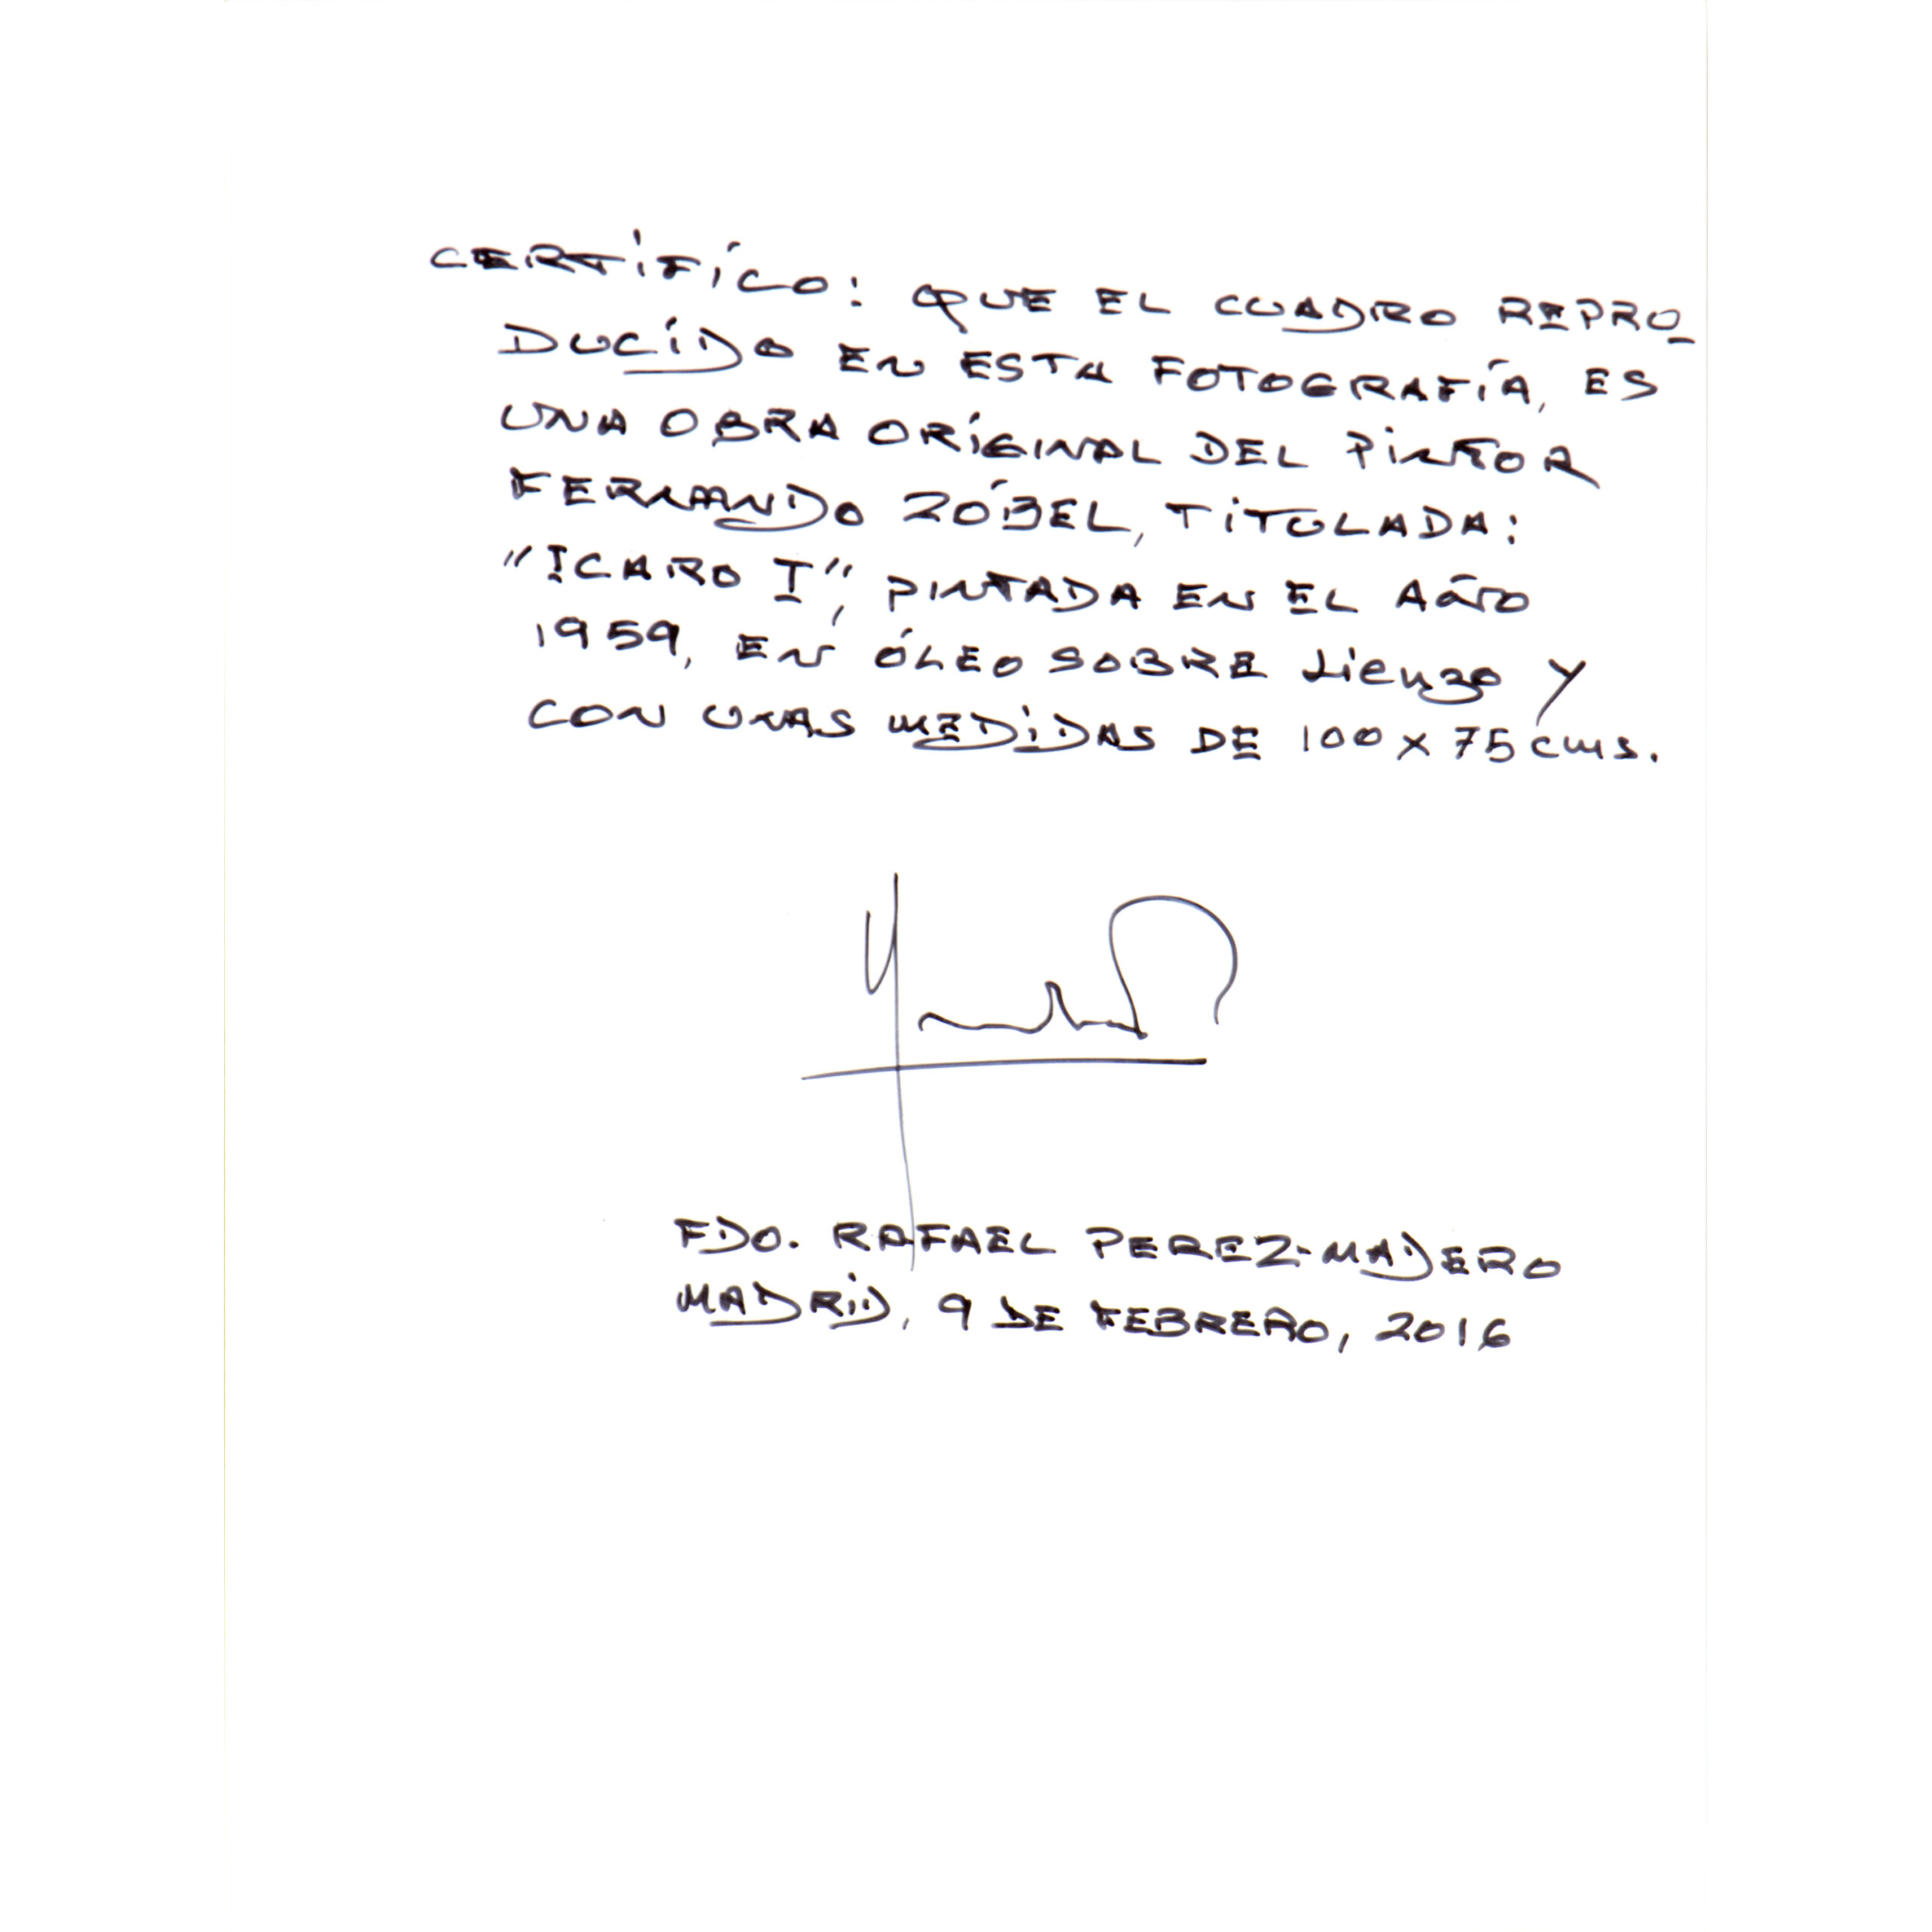 CERTIFICO: QUE EL CUADRO REPRO-
DUCIDO EN ESTA FOTOGRAFÍA, ES
UNA OBRA ORIGINAL DEL PINTOR
FERNANDO ZÓBEL, TITULADA:
"ICARO I", PINTADA EN EL AÑO
1959, EN ÓLEO SOBRE LIENZO Y
CON UNAS MEDIDAS DE 100 X 75 cms.
FDO. RAFAEL PEREZ-MADERO
MADRID, 9 DE FEBRERO, 2016